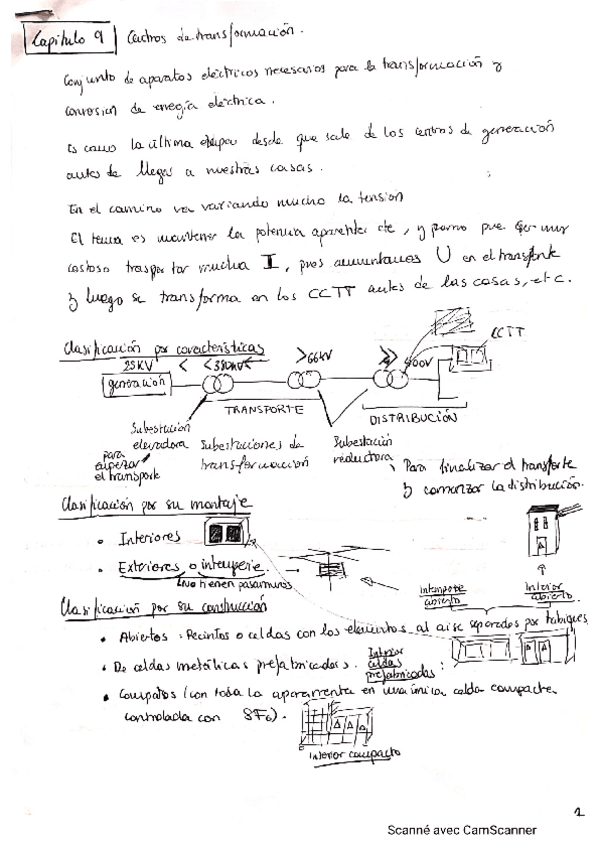 Capitulo 9 Centros de transformación.
Conjunto de aparatos eléctricos necesarios para la transformación y
conversion de energía eléctrica.
Es como la última etapa desde que sale de los centros de generación
antes de llegar a nuestras casas.
En el camino va variando mucho la tensión
El tema es mantener la potencia aparente cte, y como que es muy
costoso trasportar mucha I, pues aumentamos U en el transporte
y luego se transforma en los CCTT antes de las casas, etc.
Clasificación por características
25KV < <380KV< >66KV > 400V CCTT
generación
TRANSPORTE DISTRIBUCIÓN
Subestación elevadora
para empezar el transporte
Subestaciones de transformación
Subestación reductora
Para finalizar el transporte
y comenzar la distribución.
Clasificación por su montaje
• Interiores
• Exteriores o intemperie.
(No tienen pasamuros
Intemperie abierto
Interior abierto
Clasificacion por su construcción
• Abiertos: Recintos o celdas con los elementos al aire separados por tabiques
• De celdas metálicas prefabricadas.
Interior celdas prefabricadas:
• Compactos (con toda la aparamenta en una única celda compacta
controlada con SF6).
Interior compacto
1
Scanné avec CamScanner